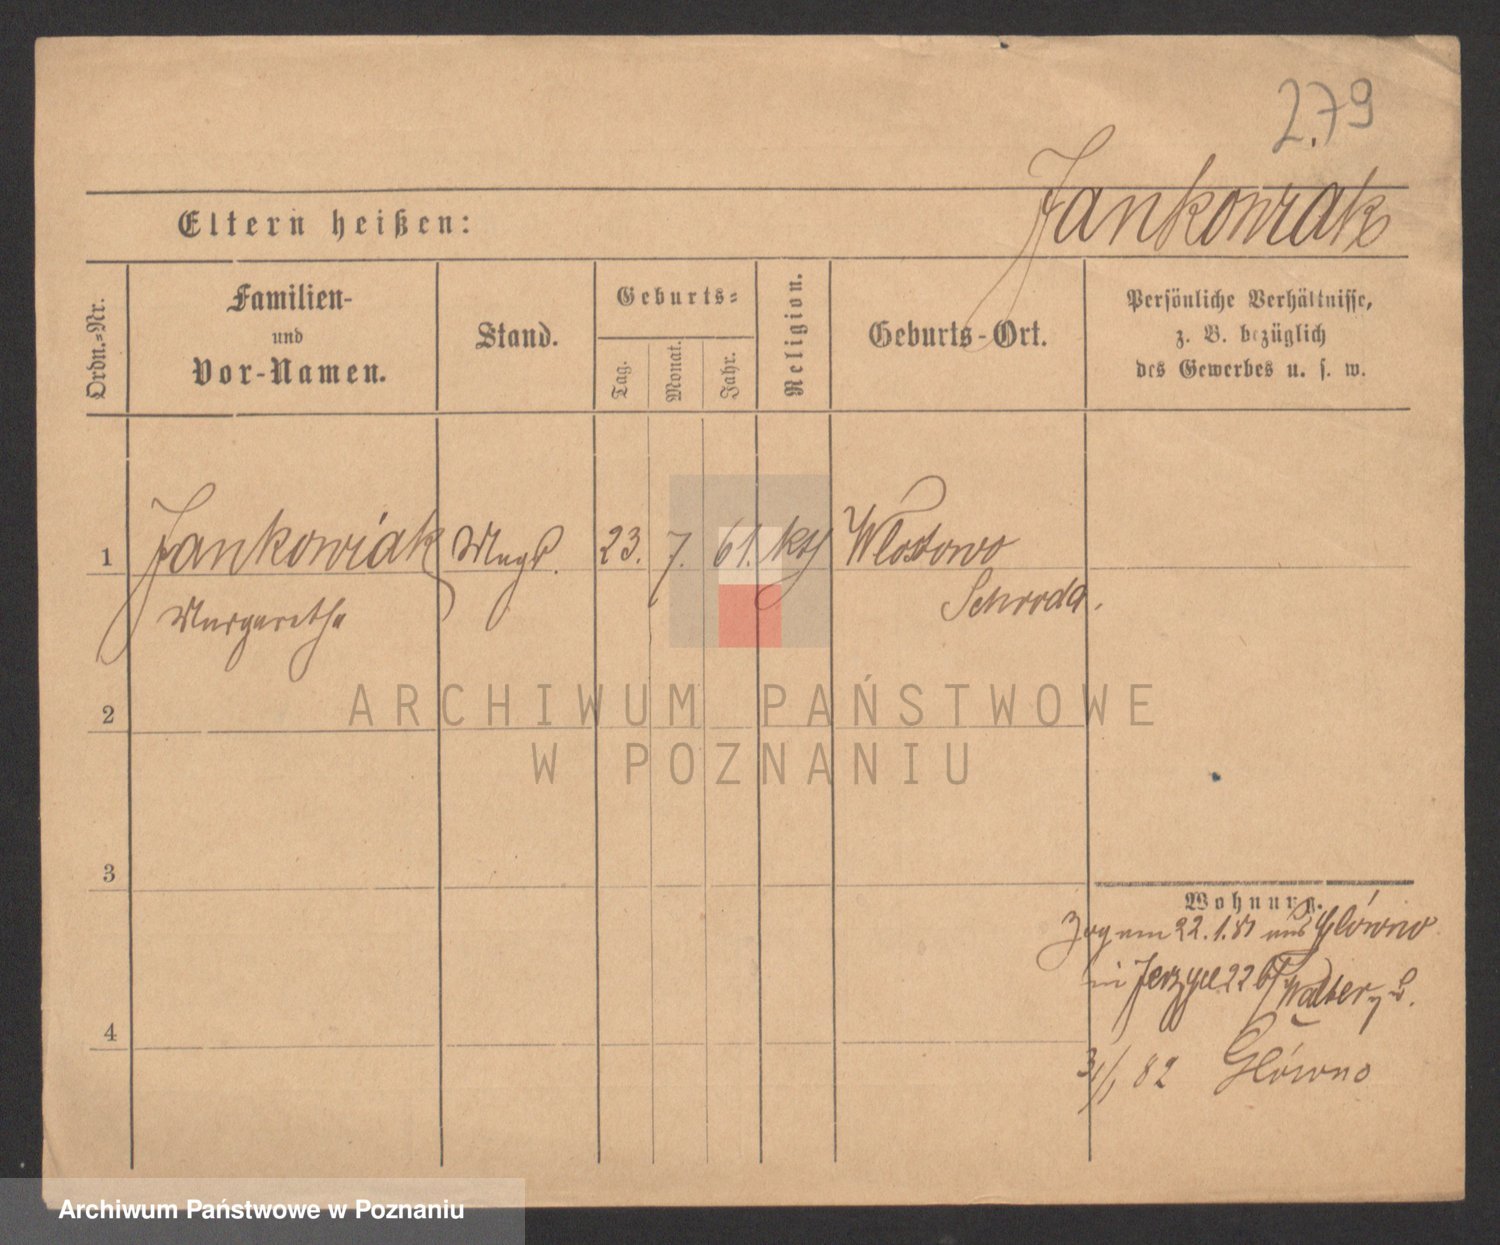 279
Jankowiak
Eltern heißen:
Ordn.-Nr.
Familien-
und
Vor-Namen.
Stand.
Geburts-
Tag.
Monat.
Jahr.
Religion.
Geburts-Ort.
Persönliche Verhältnisse,
z. B. bezüglich
des Gewerbes u. s. w.
1 Jankowiak Magd. 23. 7. 61. kth Wlostowo
Margaretha Schroda.
ARCHIWUM PAŃSTWOWE
2
W POZNANIU
3
Wohnung.
Zog am 22.1.81 aus Glówno
in Jerzyce 22 b/ Walter
3/1 82 Glówno
4
Archiwum Państwowe w Poznaniu